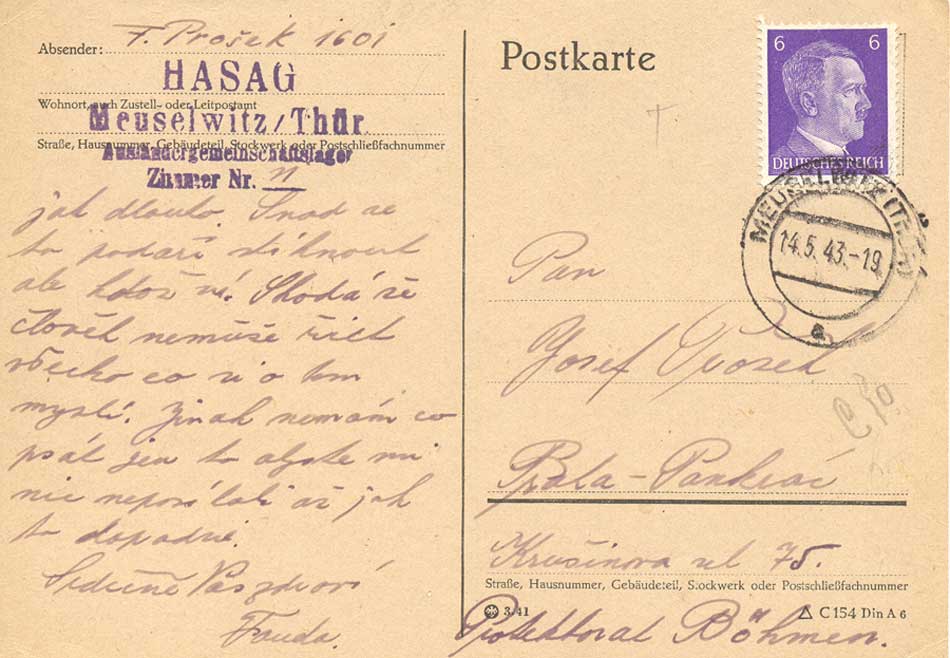 Absender: F. Prošek 1601
HASAG
Wohnort, auch Zustell- oder Leitpostamt
Meuselwitz/Thür.
Straße, Hausnummer, Gebäudeteil, Stockwerk oder Postschließfachnummer
Ausländergemeinschaftslager
Zimmer Nr. 11
jak dlouho. Snad se
to podaří stihnout
ale kdož ví. Škoda že
člověk nemůže říct
všecko co si o tom
myslí. Jinak nemám co
psát jen to abyste mi
nic neposílali až jak
to dopadne.
Srdečně Vás zdraví
Fanda.
Postkarte
6 6
DEUTSCHES REICH
MEUSELWITZ (THÜR)
14.5.43.-19
a
Pan
Josef Prošek
Praha-Pankrác
Krušinova ul 75.
Straße, Hausnummer, Gebäudeteil, Stockwerk oder Postschließfachnummer
3.41
C 154 Din A 6
Protektorat Böhmen.